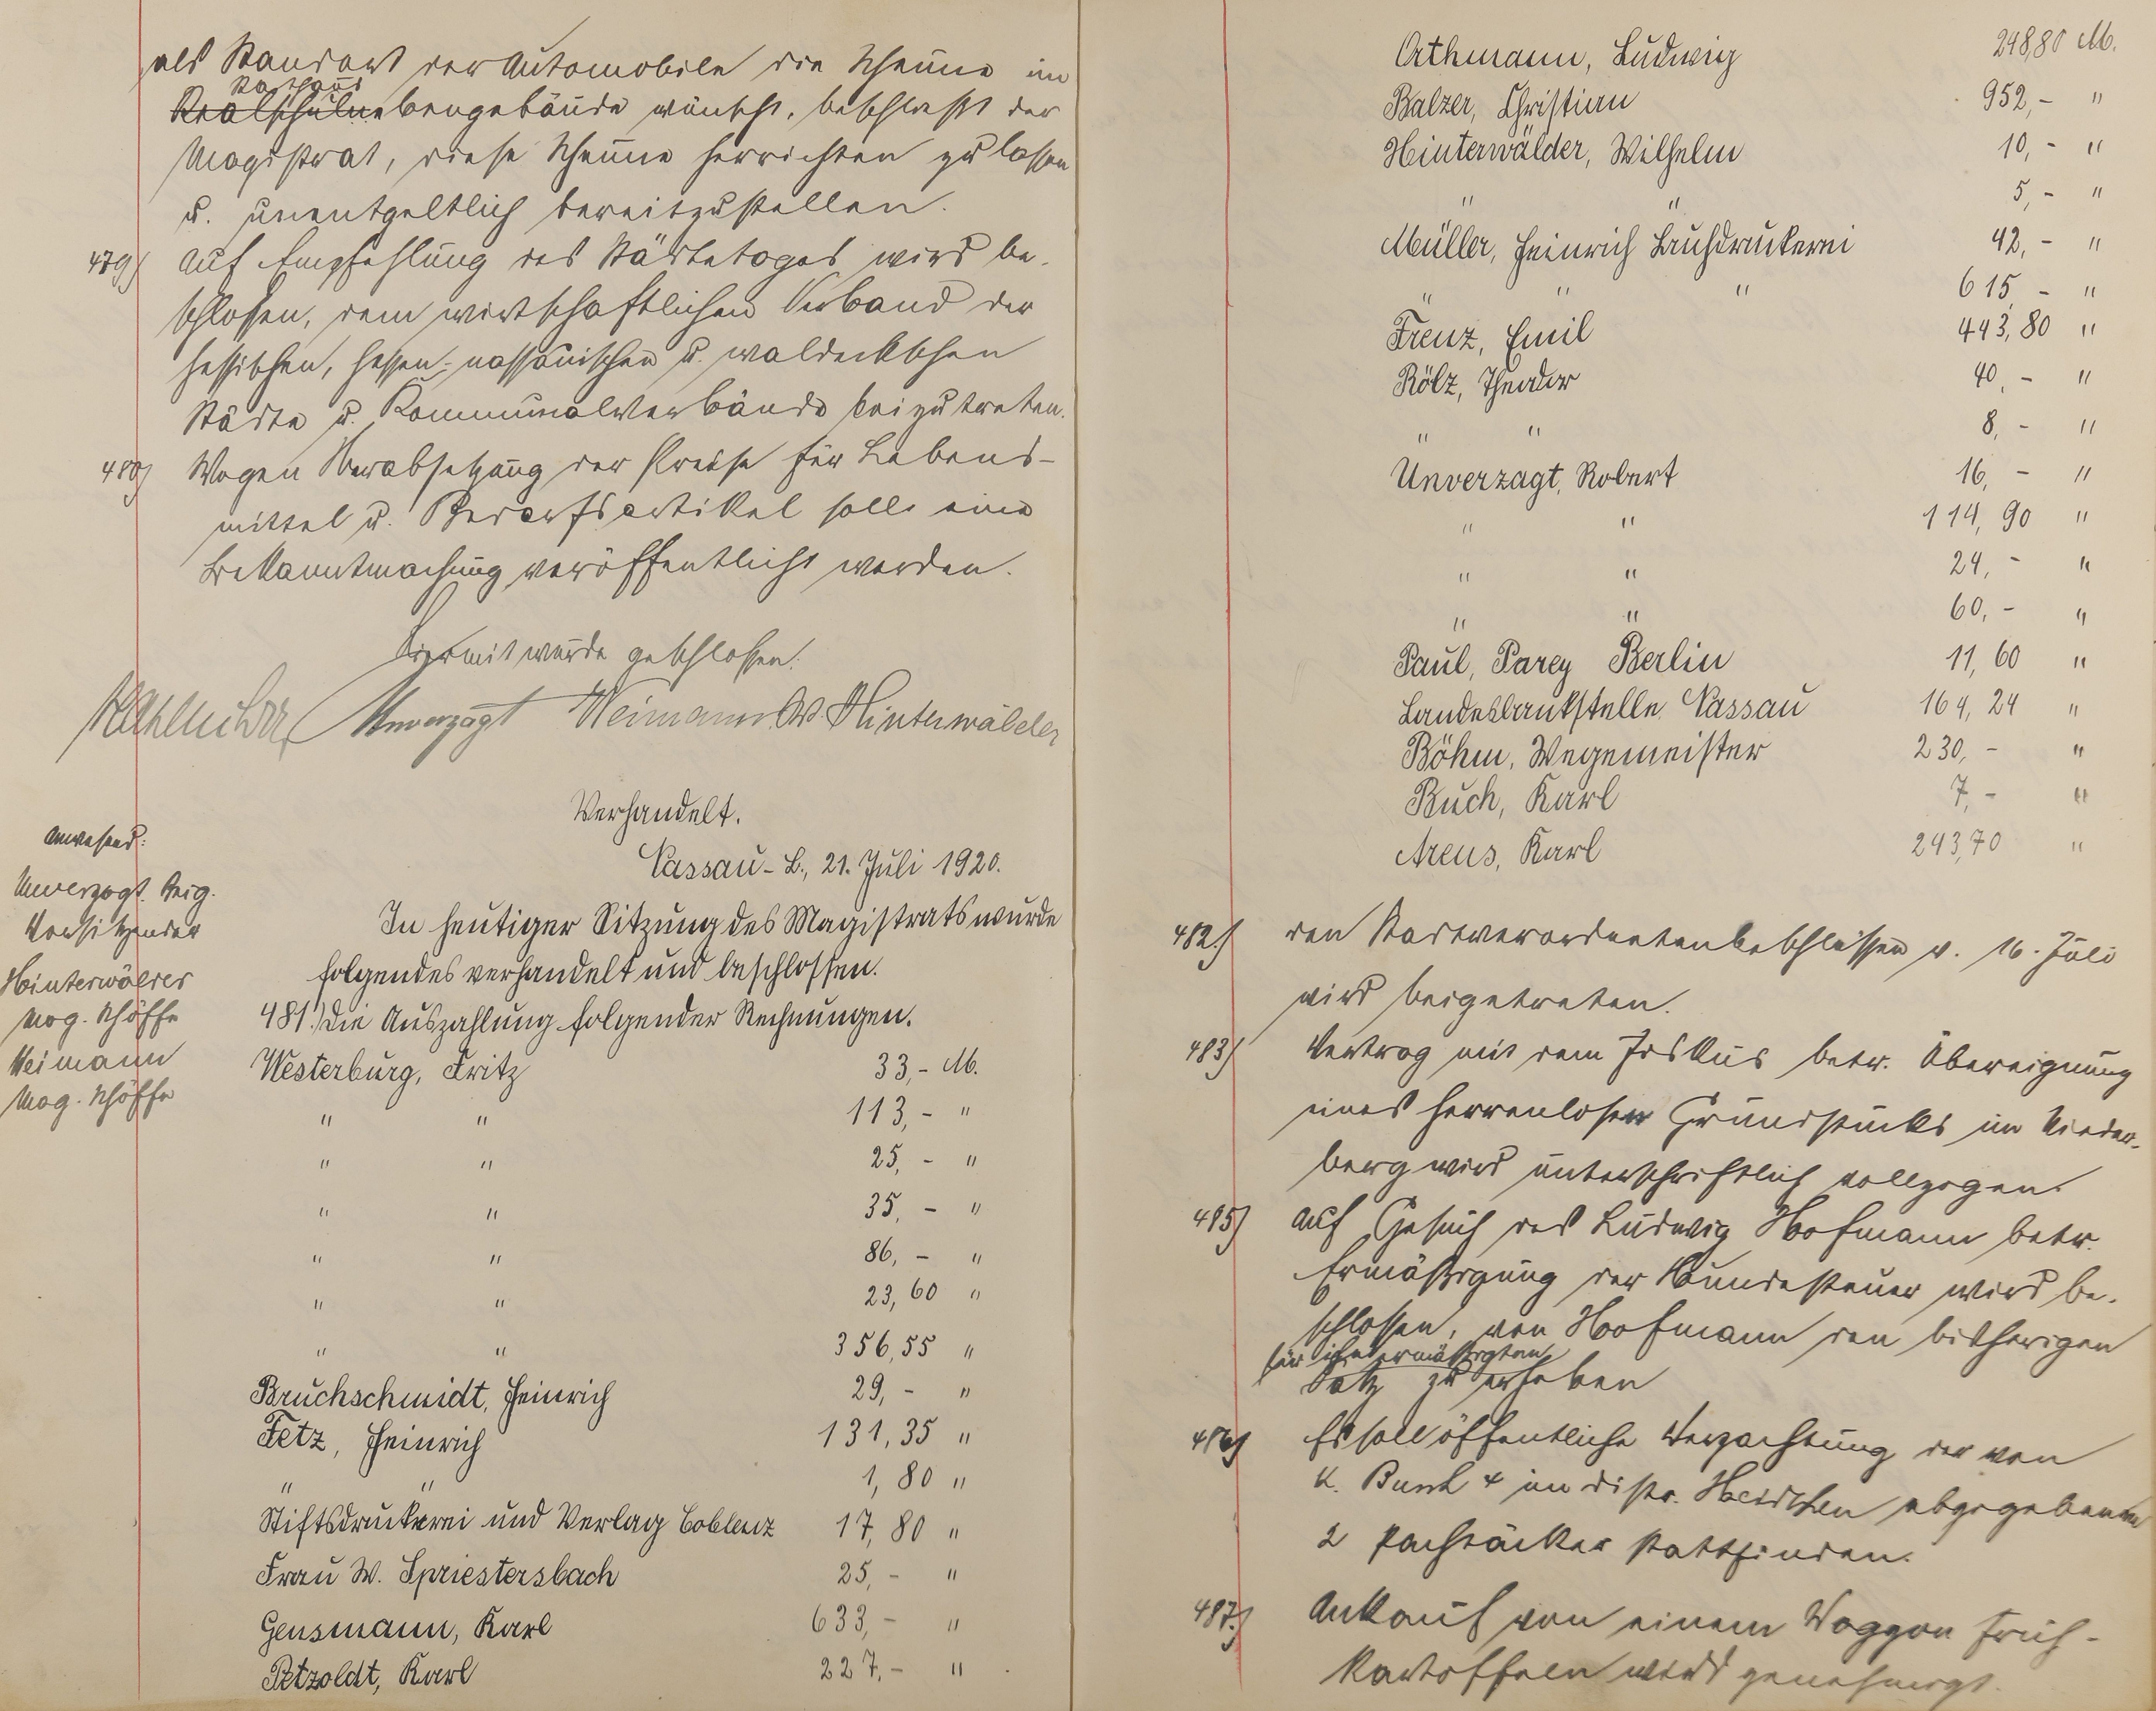 als Standort der Automobile die Scheune im
Rathaus
Realschulnebengebäude wünscht, beschließt der
Magistrat, diese Scheune herrichten zu lassen
u. unentgeltlich bereitzustellen.
479) Auf Empfehlung des Städtetages wird be-
schlossen, dem wirtschaftlichen Verband der
hessischen, hessen-nassauischen u. waldeckschen
Städte u. Kommunalverbände beizutreten.
480) Wegen Herabsetzung der Preise für Lebens-
mittel u. Bedarfsartikel soll eine
Bekanntmachung veröffentlicht werden.
Hiermit wurde geschlossen.
Unverzagt Weimann W. Hinterwälder
Verhandelt.
Nassau-L., 21. Juli 1920.
Anwesend:
Unverzagt, Beig.
Vorsitzender
Hinterwälder
Mag. Schöffe
Weimann
Mag. Schöffe
In heutiger Sitzung des Magistrats wurde
folgendes verhandelt und beschlossen.
481.) Die Auszahlung folgender Rechnungen.
Westerburg, Fritz 33,- M.
" " 113,- "
" " 25,- "
" " 35,- "
" " 86,- "
" " 23,60 "
" " 356,55 "
Bruchschmidt, Heinrich 29,- "
Fetz, Heinrich 131,35 "
" " 1,80 "
Stiftsdruckerei und Verlag Coblenz 17,80 "
Frau W. Spriestersbach 25,- "
Gensmann, Karl 633,- "
Petzoldt, Karl 227,- "
Arthmann, Ludwig 248,80 M.
Balzer, Christian 952,- "
Hinterwälder, Wilhelm 10,- "
" " 5,- "
Müller, Heinrich Buchdruckerei 42,- "
" " " 615,- "
Frenz, Emil 443,80 "
Rölz, Theodor 40,- "
" " 8,- "
Unverzagt, Robert 16,- "
" " 114,90 "
" " 24,- "
" " 60,- "
Paul, Parey Berlin 11,60 "
Landesbankstelle Nassau 164,24 "
Böhm, Wegemeister 230,- "
Buch, Karl 7,- "
Arens, Karl 243,70 "
482.) Den Stadtverordnetenbeschlüssen v. 16. Juli
wird beigetreten.
483) Vertrag mit dem Fiskus betr. Übereignung
eines herrenlosen Grundstücks im Nieder-
berg wird unterschriftlich vollzogen.
485) Auf Gesuch des Ludwig Hofmann betr.
Ermäßigung der Hundesteuer wird be-
schlossen, von Hofmann den bisherigen
für ermäßigten
Satz zu erheben
486) Es soll öffentliche Verpachtung der von
K. Busch + im Distr. Heidchen abgegebenen
2 Pachtäcker stattfinden.
487.) Ankauf von einem Waggon Früh-
kartoffeln wird genehmigt.